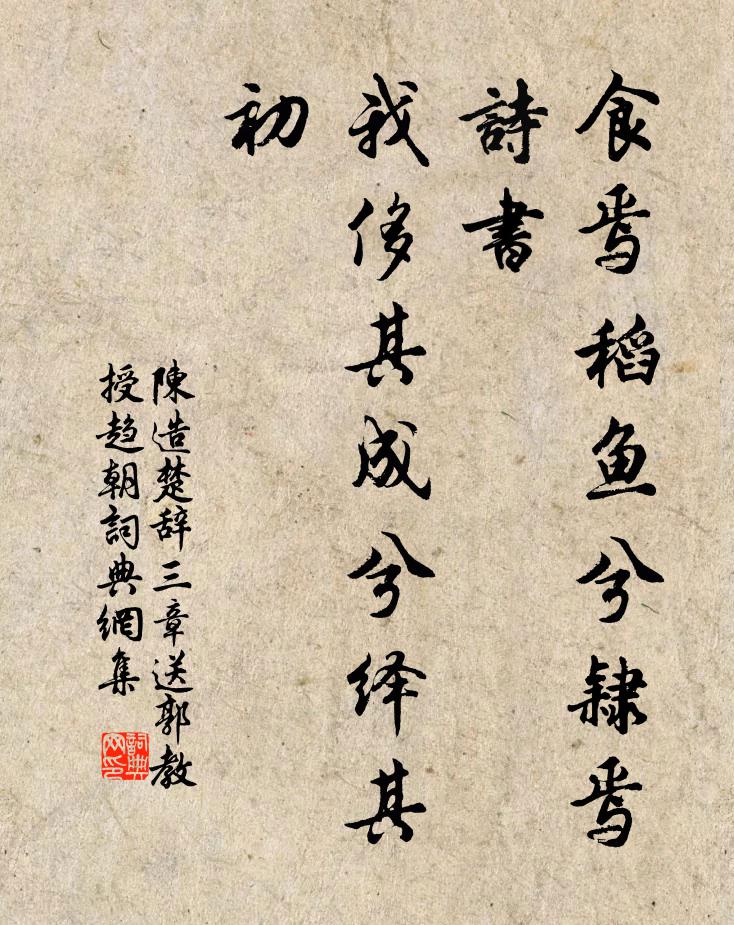 食焉稻鱼兮隸焉
詩書
我侈其成兮绎其
初
陳造楚辞三章送郭教
授趋朝詞典網集
詞典
网印